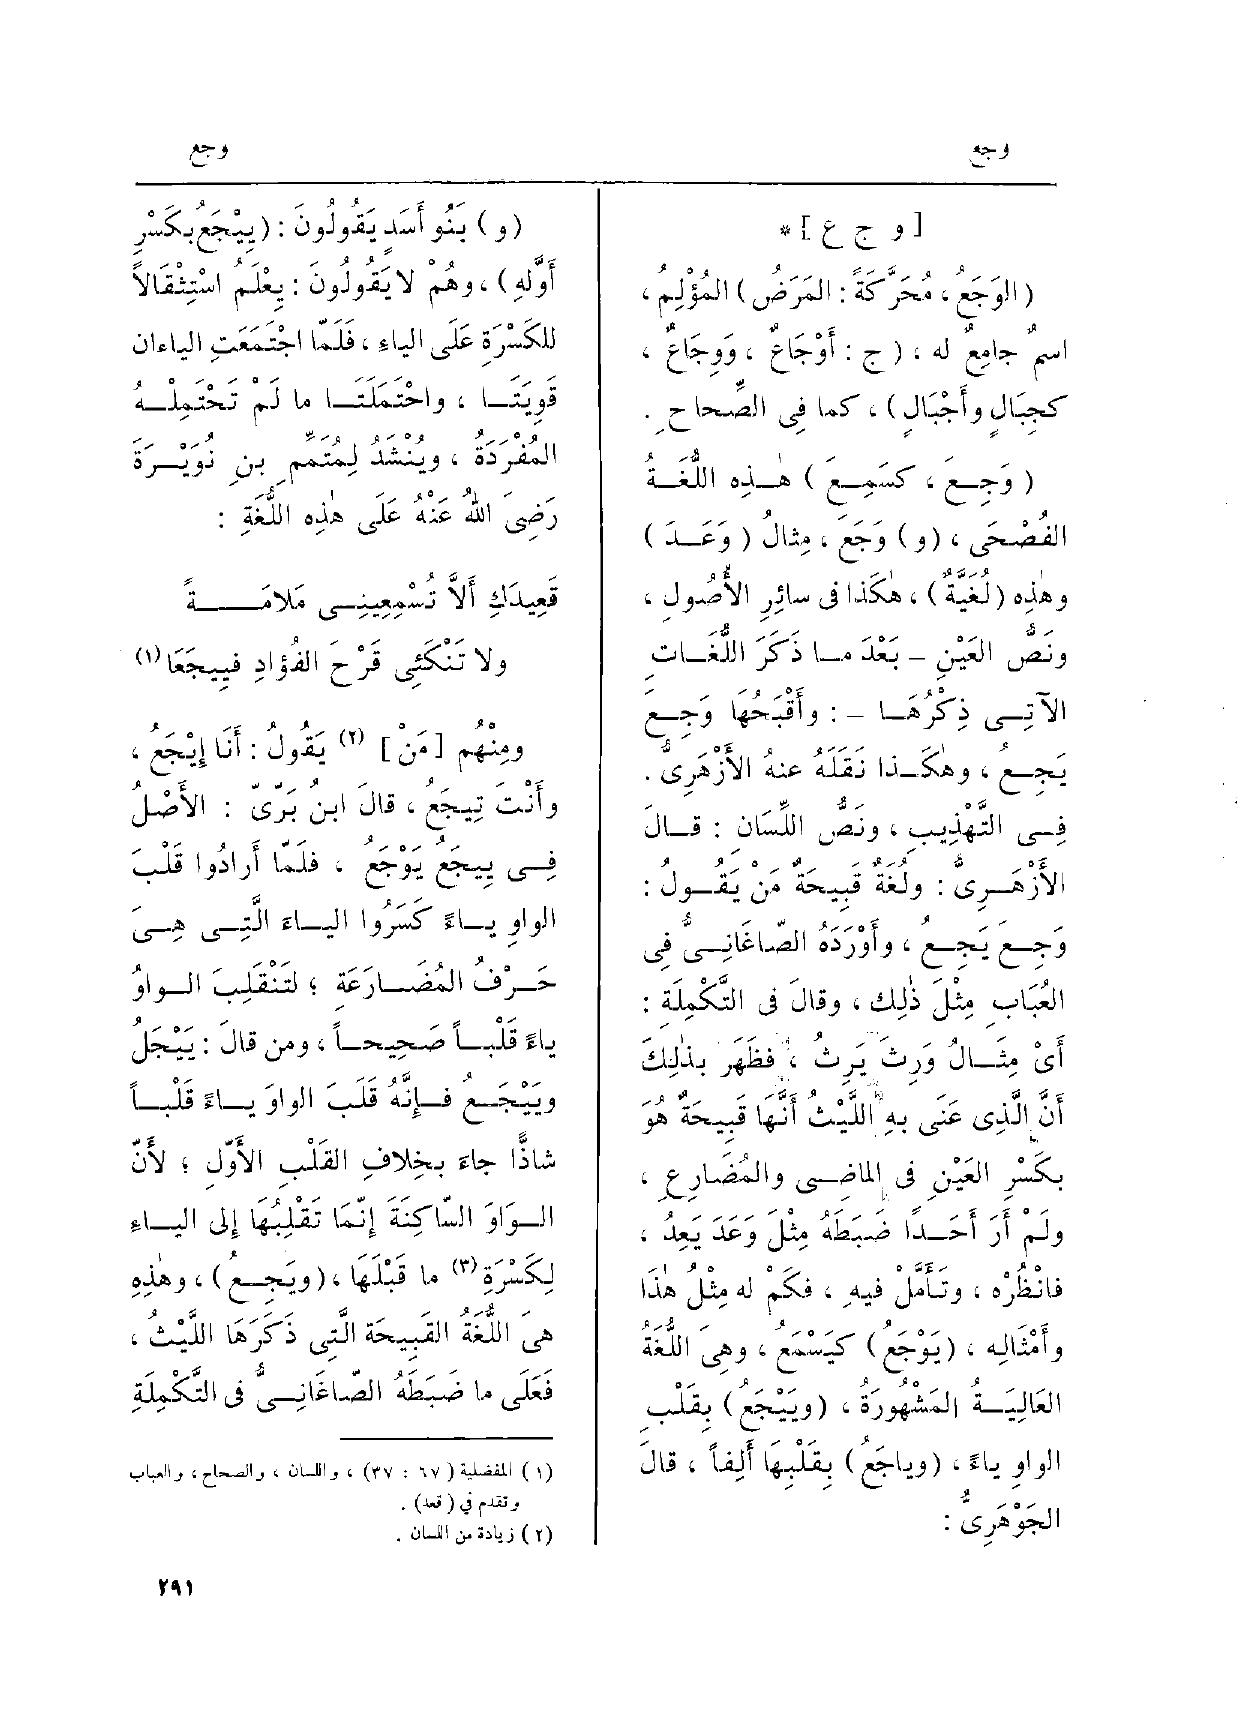 وجع
وجع
[ و ج ع ] *
( الوَجَعُ ، مُحَرَّكَةً : المَرَضُ ) المُؤْلِمُ ،
اسمٌ جامِعٌ له ، ( ج : أَوْجَاعٌ ، ووِجَاعٌ ،
كجِبَالٍ وأَجْبَالٍ ) ، كما فِى الصِّحاحِ .
( وَجِـعَ ، كسَمِـعَ ) هـٰـذِه اللُّغَـةُ
الفُصْحَى ، (و) وَجَعَ ، مِثالُ ( وَعَـدَ )
وهٰذِه (لُغَيَّةٌ) ، هٰكَذا فى سائِرِ الأُصُولِ ،
ونَصُّ العَيْنِ - بَعْدَ مـا ذَكَرَ اللُّغَـاتِ
الآتِـى ذِكْرُهَـا - : وأَقْبَحُهَا وَجِـعَ
يَجِـعُ ، وهكَـذا نَقَلَهُ عنهُ الأَزْهَرِىُّ .
فِـى التَّهْذِيبِ ، ونَصُّ اللِّسَانِ : قـالَ
الأَزْهَـرِىُّ : ولُغَةٌ قَبِيحَةٌ مَن يَقُـولُ :
وَجِـعَ يَجِـعُ ، وأَوْرَدَهُ الصّاغَانِـىُّ فِى
العُبَابِ مِثْلَ ذٰلِكَ ، وقالَ فى التَّكْمِلَةِ :
أَىْ مِثَـالُ وَرِثَ يَرِثُ ، فظَهَر بذٰلِكَ
أَنَّ الَّذِى عَنَى بهِ اللَّيْثُ أَنَّهَا قَبِيحَةٌ هُوَ
بكَسْرِ العَيْنِ فى الماضِـى والمُضَارِعِ ،
ولَمْ أَرَ أَحَـدًا ضَبَطَهُ مِثْلَ وَعَدَ يَعِدُ ،
فانْظُرْه ، وتَأَمَّلْ فيهِ ، فكَمْ له مِثْلُ هٰذَا
وأَمْثَالِه ، (يَوْجَعُ) كيَسْمَعُ ، وهِىَ اللُّغَةُ
العَالِيَـةُ المَشْهُورَةُ ، (ويَيْجَعُ) بقَلْبِ
الواوِ ياءً ، (وياجَعُ) بقَلْبِهَا أَلِفاً ، قالَ
الجَوْهَرِىُّ :
(و) بَنُو أَسَدٍ يَقُولُونَ : (يِيْجَعُ بكَسْرِ
أَوَّلِه) ، وهُمْ لا يَقُولُونَ : يِعْلَمُ اسْتِثْقَالاً
للكَسْرَةِ عَلَى الياءِ ، فَلَمّا اجْتَمَعَتِ الياءان
قَوِيَتَـا ، واحْتَمَلَتَـا ما لَمْ تَحْتَمِلْـهُ
المُفْرَدَةُ ، ويُنْشَدُ لِمُتَمِّمِ بنِ نُوَيْـرَةَ
رَضِىَ اللهُ عَنْهُ عَلَى هٰذِه اللُّغَةِ :
قَعِيدَكِ أَلاَّ تُسْمِعِينِـى مَلامَـــةً
ولا تَنْكَئِى قَرْحَ الفُؤادِ فَيِيجَعَا (١)
ومِنْهُم [ مَنْ ] (٢) يَقُولُ : أَنَا إِيْجَعُ ،
وأَنْتَ تِيجَع ، قالَ ابن بَرِّىّ : الأَصْلُ
فِـى يِيجَعُ يَوْجَع ، فلَمّا أَرادُوا قَلْبَ
الواوِ يـاءً كَسَرُوا اليـاءَ الَّتِـى هِـىَ
حَـرْفُ المُضَـارَعَةِ ؛ لتَنْقَلِبَ الـواوُ
ياءً قَلْبـاً صَحِيحـاً ، ومن قالَ : يَيْجَلُ
ويَيْجَـعُ فـإِنَّهُ قَلَبَ الواوَ يـاءً قَلْبـاً
شاذًّا جاءَ بخِلافِ القَلْبِ الأَوّلِ ؛ لأَنّ
الـوَاوَ السّاكِنَةَ إِنّمَا تَقْلِبُهَا إلى اليـاءِ
لِكَسْرَةِ (٣) ما قَبْلَهَا ، (ويَجِـعُ) ، وهٰذِهِ
هىَ اللُّغَةُ القَبِيحَة الَّتِى ذَكَرَهَا اللَّيْثُ ،
فَعَلَى ما ضَبَطَهُ الصّاغَانِـىُّ فى التَّكْمِلَةِ
(١) المفضلية ( ٦٧ : ٣٧) ، واللسان ، والصحاح ، والعباب
وتقدم في ( قعد ) .
(٢) زيادة من اللسان .
٢٩١